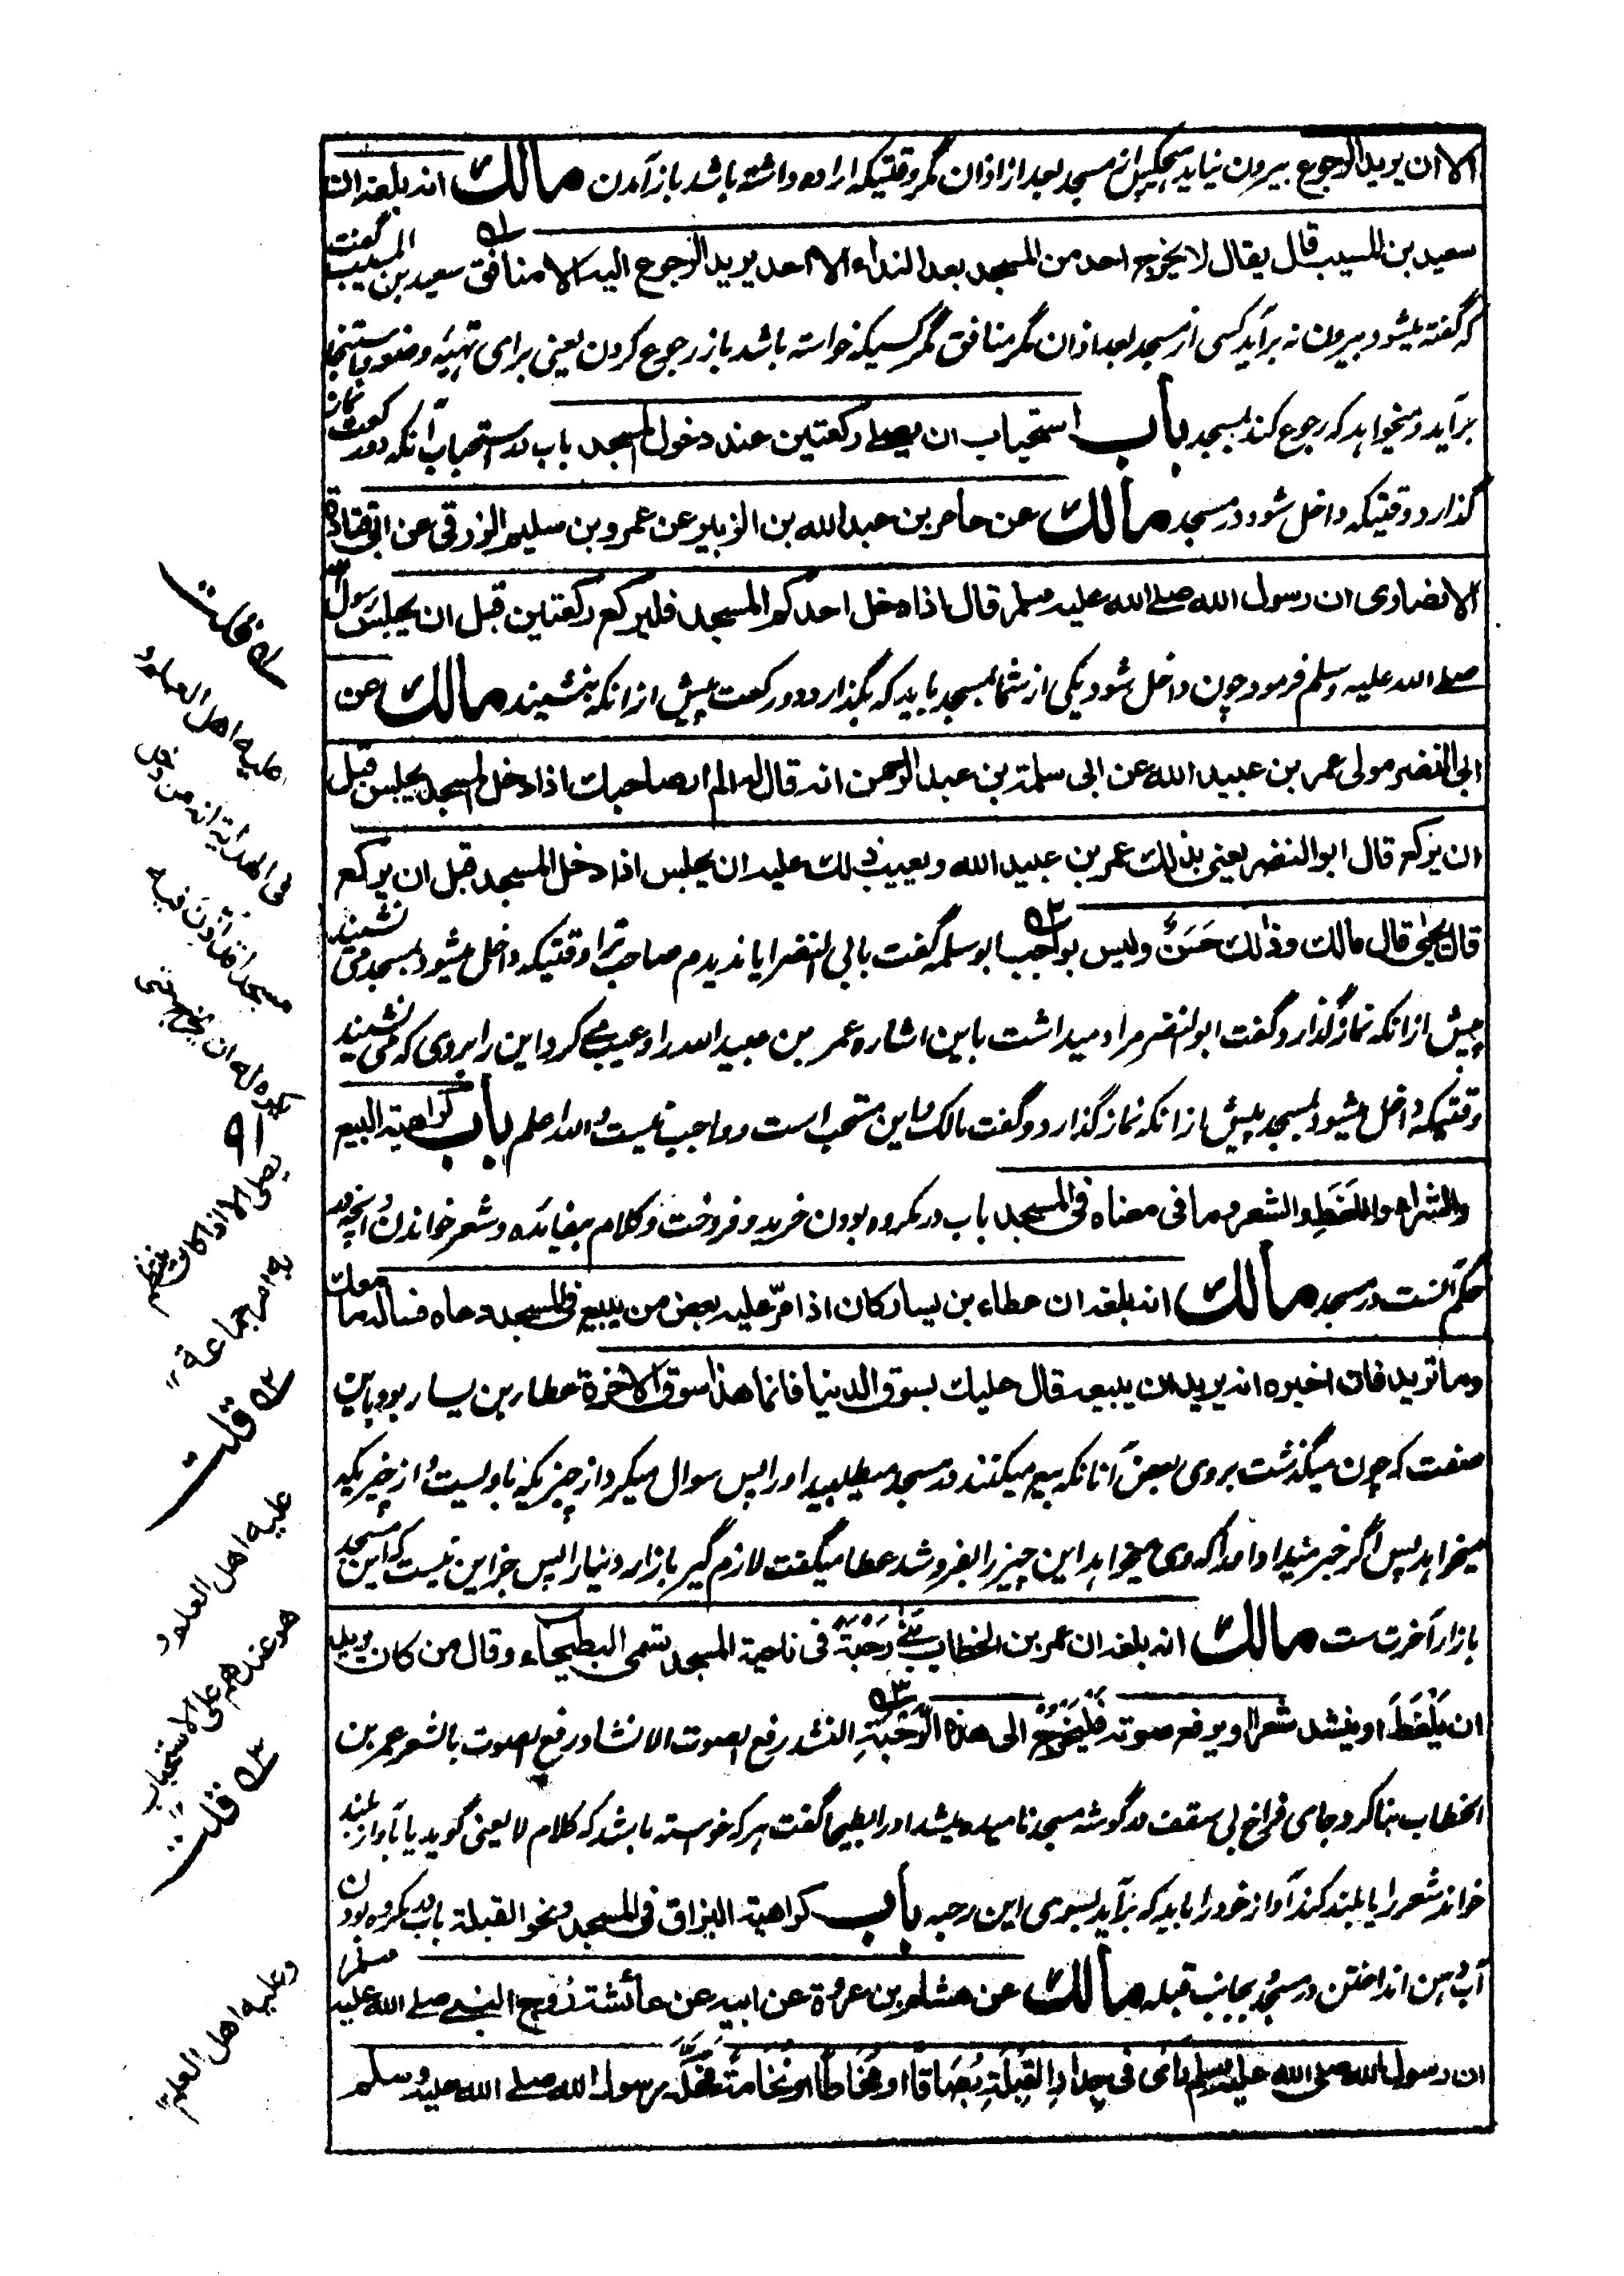 الا ان يريد الرجوع بيرون نيايد هيچكس از مسجد بعد از اذان مگر وقتيكه اراده داشته باشد باز آمدن مالك انه بلغه ان
سعيد بن المسيب قال يقال لا يخرج احد من المسجد بعد النداء الا احد يريد الرجوع اليه الا منافق سعيد بن المسيب گفت
كه گفته ميشود بيرون نه برآيد كسی از مسجد بعد اذان مگر منافق مگر كسيكه خواسته باشد باز رجوع كردن يعنی برای تهيئه وضو يا استنجا
برآيد و ميخواهد كه رجوع كند بمسجد باب استحباب ان يصلے ركعتين عند دخول المسجد باب در استحباب آنكه دو ركعت نماز
گذارد وقتيكه داخل شود در مسجد مالك عن عامر بن عبد الله بن الزبير عن عمرو بن سليم الزرقی عن ابی قتادة
الانصاری ان رسول الله صلے الله عليه وسلم قال اذا دخل احدكم المسجد فليركع ركعتين قبل ان يجلس رسول الله
صلے الله عليه وسلم فرمود چون داخل شود يكی از شما بمسجد بايد كه بگذارد دو ركعت پيش از انكه بنشيند مالك عن
ابی النضر مولی عمر بن عبيد الله عن ابی سلمة بن عبد الرحمن انه قال له الم ار صاحبك اذا دخل المسجد يجلس قبل
ان يركع قال ابو النضر يعنی بذلك عمر بن عبيد الله ويعيب ذلك عليه ان يجلس اذا دخل المسجد قبل ان يركع
قال يحيی قال مالك وذلك حَسَنٌ وليس بواجب ابو سلمه گفت بابی النضر ايا نديدم صاحب ترا وقتيكه داخل ميشود بمسجد می نشيند
پيش از انكه نماز گذارد و گفت ابو النضر مراد ميداشت باين اشاره عمر بن عبيد الله را و عيب می كرد اين را بروی كه می نشيند
وقتيكه داخل ميشود بمسجد پيش از انكه نماز گذارد و گفت مالك اين مستحب است و واجب نيست والله اعلم باب كراهية البيع
والشراء واللغط والشعر وما فی معناه فی المسجد باب در مكروه بودن خريد و فروخت و كلام بيفايده و شعر خواندن و آنچه در
حكم آنست در مسجد مالك انه بلغه ان عطاء بن يسار كان اذا مرّ عليه بعض من يبيع فی المسجد دعاه فساله ما معك
وما تريد فان اخبره انه يريد ان يبيعه قال عليك بسوق الدنيا فانما هذا سوق الاخرة عطار بن يسار بود باين
صفت كه چون ميگذشت بروی بعض آنانكه بيع ميكنند در مسجد ميطلبيد او را پس سوال ميكرد از چيزيكه با وليست و از چيزيكه
ميخواهد پس اگر خبر ميداد او را كه وی ميخواهد اين چيز را بفروشد عطا ميگفت لازم گير بازار دنيا را پس جز اين نيست كه اين مسجد
بازار آخرت ست مالك انه بلغه ان عمر بن الخطاب بَنٰے رَحْبَةً فی ناحية المسجد تسمی البطيحاء وقال من كان يريد
ان يَلْغَطَ او ينشد شعرا او يرفع صوته فَلْيَخْرُجْ الی هذه الرَّحْبَةِ النشد رفع الصوت الانشاد رفع الصوت بالشعر عمر بن
الخطاب بنا كرد جای فراخ بی سقف در گوشه مسجد ناميده ميشد او را بطيحا گفت هر كه خواسته باشد كه كلام لا يعنی گويد يا بآواز بلند
خواند شعر را يا بلند كند آواز خود را بايد كه برآيد بسوی اين رحبه باب كراهية البزاق فی المسجد ونحو القبلة باب در مكروه بودن
آب دهن انداختن در مسجد و بجانب قبله مالك عن هشام بن عروة عن ابيه عن عائشة زوج النبے صلے الله عليه وسلم
ان رسول الله صلی الله عليه وسلم رای فی جدار القِبْلَةِ بُصَاقًا او مُخَاطًا او نُخَامَةً فَحَكَّهُ رسول الله صلے الله عليه وسلم
اه قلت
عليه اهل العلم و
فی الهداية ان من دخل
مسجدا قد اُذِّنَ فيه
يكره له ان يخرج حتی
يصلی الا اذا كان ينتظم
به امر جماعة
۹۱
۵۲ قلت
عليه اهل العلم و
هو عندهم علی الاستحباب
۵۳ قلت
وعليه اهل العلم